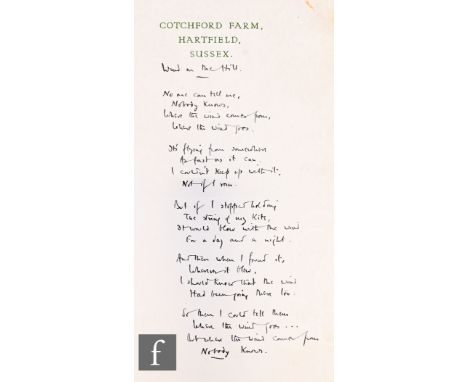 COTCHFORD FARM,
HARTFIELD,
SUSSEX.
Wind on the Hill.
No one can tell me,
Nobody knows,
Where the wind comes from,
Where the wind goes.
It's flying from somewhere
As fast as it can.
I couldn't keep up with it,
Not if I ran.
But if I stopped holding
The string of my kite,
It would blow with the wind
For a day and a night.
And then when I found it,
Wherever it blew,
I should know that the wind
Had been going there too.
So then I could tell them
Where the wind goes...
But where the wind comes from
Nobody knows.
f